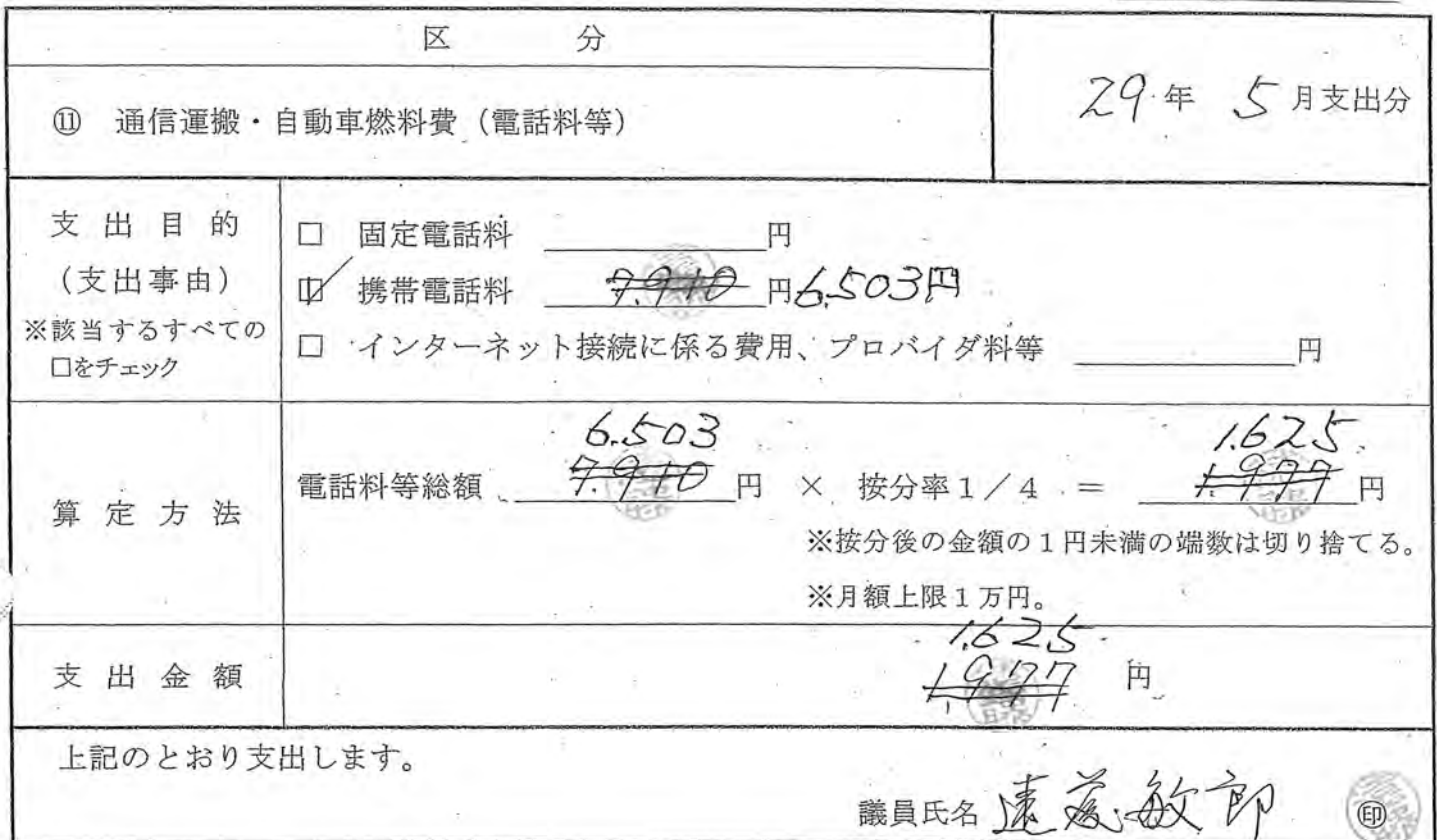 区 分
29年 5月支出分
⑪ 通信運搬・自動車燃料費（電話料等）
支 出 目 的
（支出事由）
※該当するすべての
□をチェック
□ 固定電話料 円
☑ 携帯電話料 7.910 円 6,503円
□ インターネット接続に係る費用、プロバイダ料等 円
算 定 方 法
6.503 1.625
電話料等総額 7.910 円 × 按分率1／4 ＝ 1.977 円
※按分後の金額の1円未満の端数は切り捨てる。
※月額上限1万円。
1.625
支 出 金 額 1,977 円
上記のとおり支出します。
議員氏名 遠藤敏郎 ㊞